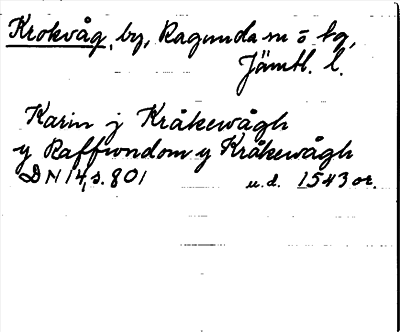 Krokvåg, by, Ragunda sn o tg,
Jämtl. l.
Karin j Kråkewågh
y Raffwndom y Kråkewågh
DN 14, s. 801 u. d. 1543 or.